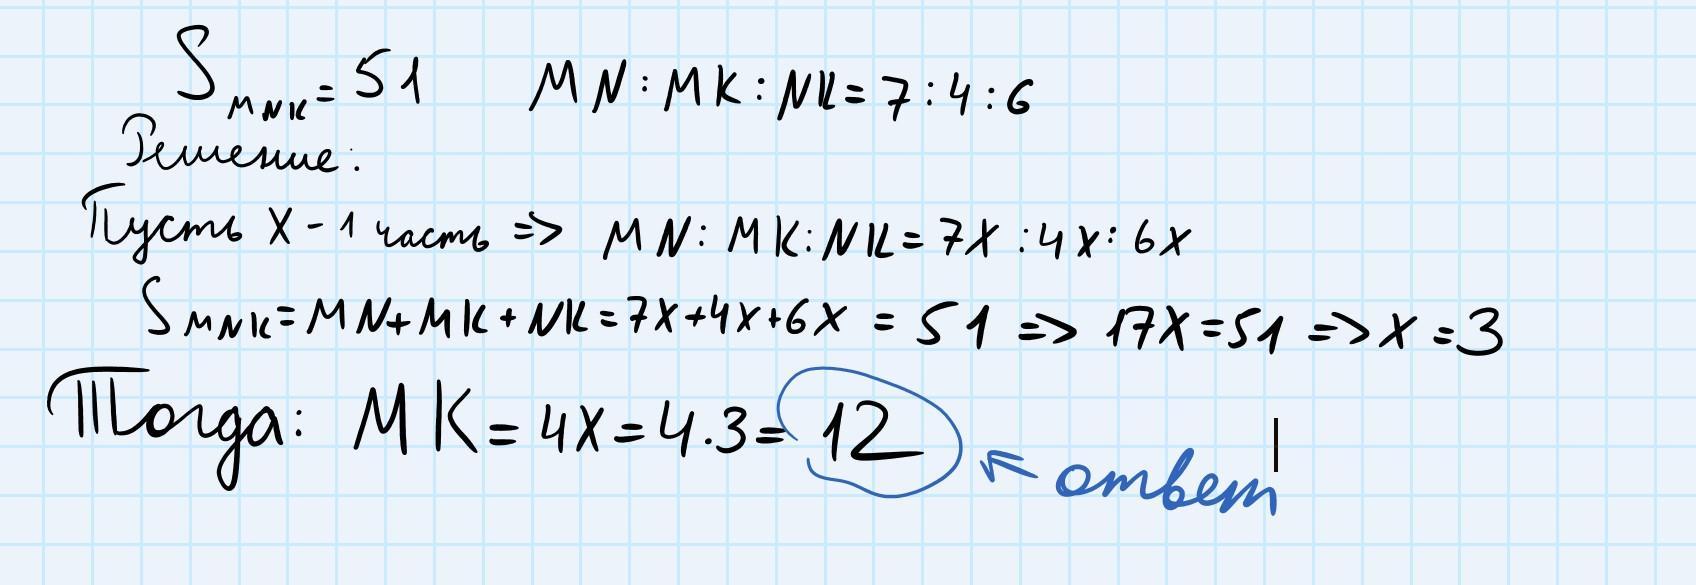 S MNK = 51 MN : MK : NK = 7 : 4 : 6
Решение:
Пусть X - 1 часть => MN : MK : NK = 7X : 4X : 6X
S MNK = MN + MK + NK = 7X + 4X + 6X = 51 => 17X = 51 => X = 3
Тогда: MK = 4X = 4 . 3 = 12
ответ